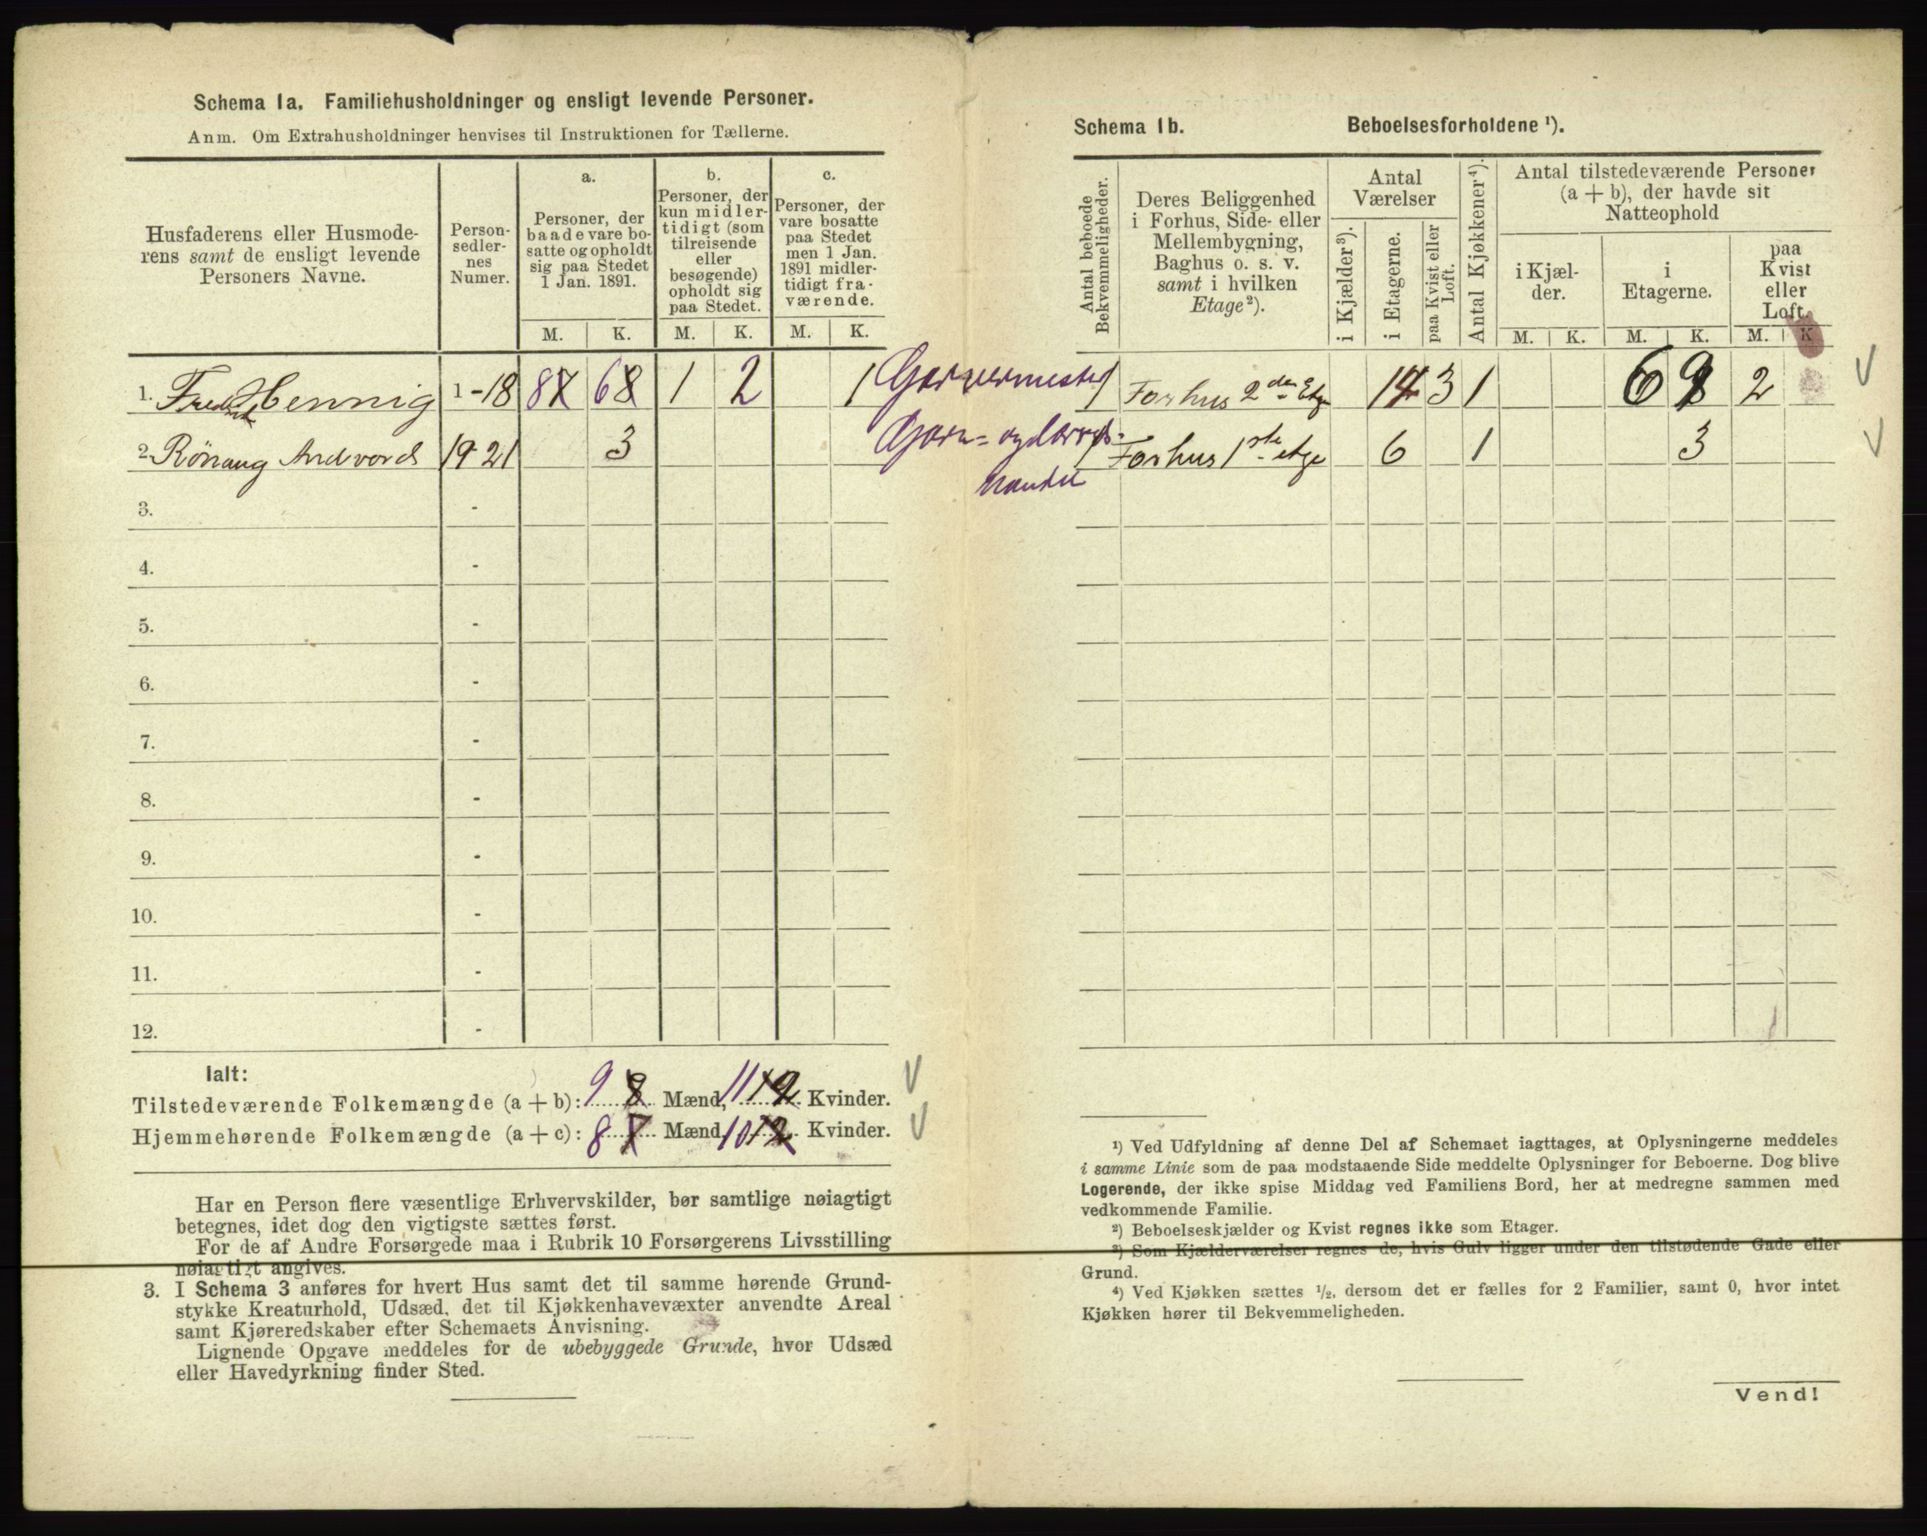 Schema 1a. Familiehusholdninger og ensligt levende Personer.
Anm. Om Extrahusholdninger henvises til Instruktionen for Tællerne.
Husfaderens eller Husmode-
rens samt de ensligt levende
Personers Navne.
Person-
sedler-
nes
Numer.
a.
Personer, der
baade vare bo-
satte og opholdt
sig paa Stedet
1 Jan. 1891.
b.
Personer, der
kun midler-
tidigt (som
tilreisende
eller
besøgende)
opholdt sig
paa Stedet.
c.
Personer, der
vare bosatte
paa Stedet
men 1 Jan.
1891 midler-
tidigt fra-
værende.
M. K. M. K. M. K.
1. Fredrik Hennig 1-18 87 68 1 2 1 Garvermester
2. Rönaug Andvord 19 21 3 Garn- og
handel
3. -
4. -
5. -
6. -
7. -
8. -
9. -
10. -
11. -
12. -
Ialt:
Tilstedeværende Folkemængde (a + b): 9 8 Mænd, 11 12 Kvinder.
Hjemmehørende Folkemængde (a + c): 8 7 Mænd 10 12 Kvinder.
Har en Person flere væsentlige Erhvervskilder, bør samtlige nøiagtigt
betegnes, idet dog den vigtigste sættes først.
For de af Andre Forsørgede maa i Rubrik 10 Forsørgerens Livsstilling
nøiagtigt angives.
3. I Schema 3 anføres for hvert Hus samt det til samme hørende Grund-
stykke Kreaturhold, Udsæd, det til Kjøkkenhavevæxter anvendte Areal
samt Kjøreredskaber efter Schemaets Anvisning.
Lignende Opgave meddeles for de ubebyggede Grunde, hvor Udsæd
eller Havedyrkning finder Sted.
Schema 1b. Beboelsesforholdene ¹).
Antal beboede
Bekvemmeligheder.
Deres Beliggenhed
i Forhus, Side- eller
Mellembygning,
Baghus o. s. v.
samt i hvilken
Etage²).
Antal
Værelser
i Kjælder³).
i Etagerne.
paa Kvist eller
Loft.
Antal Kjøkkener⁴).
Antal tilstedeværende Personer
(a + b), der havde sit
Natteophold
i Kjæl-
der.
i
Etagerne.
paa
Kvist
eller
Loft.
M. K. M. K. M. K
1 Forhus 2den Etge 14 3 1 6 9 2
1 Forhus 1ste etge 6 1 3
¹) Ved Udfyldning af denne Del af Schemaet iagttages, at Oplysningerne meddeles
i samme Linie som de paa modstaaende Side meddelte Oplysninger for Beboerne. Dog blive
Logerende, der ikke spise Middag ved Familiens Bord, her at medregne sammen med
vedkommende Familie.
²) Beboelseskjælder og Kvist regnes ikke som Etager.
³) Som Kjælderværelser regnes de, hvis Gulv ligger under den tilstødende Gade eller
Grund.
⁴) Ved Kjøkken sættes ½, dersom det er fælles for 2 Familier, samt 0, hvor intet
Kjøkken hører til Bekvemmeligheden.
Vend!